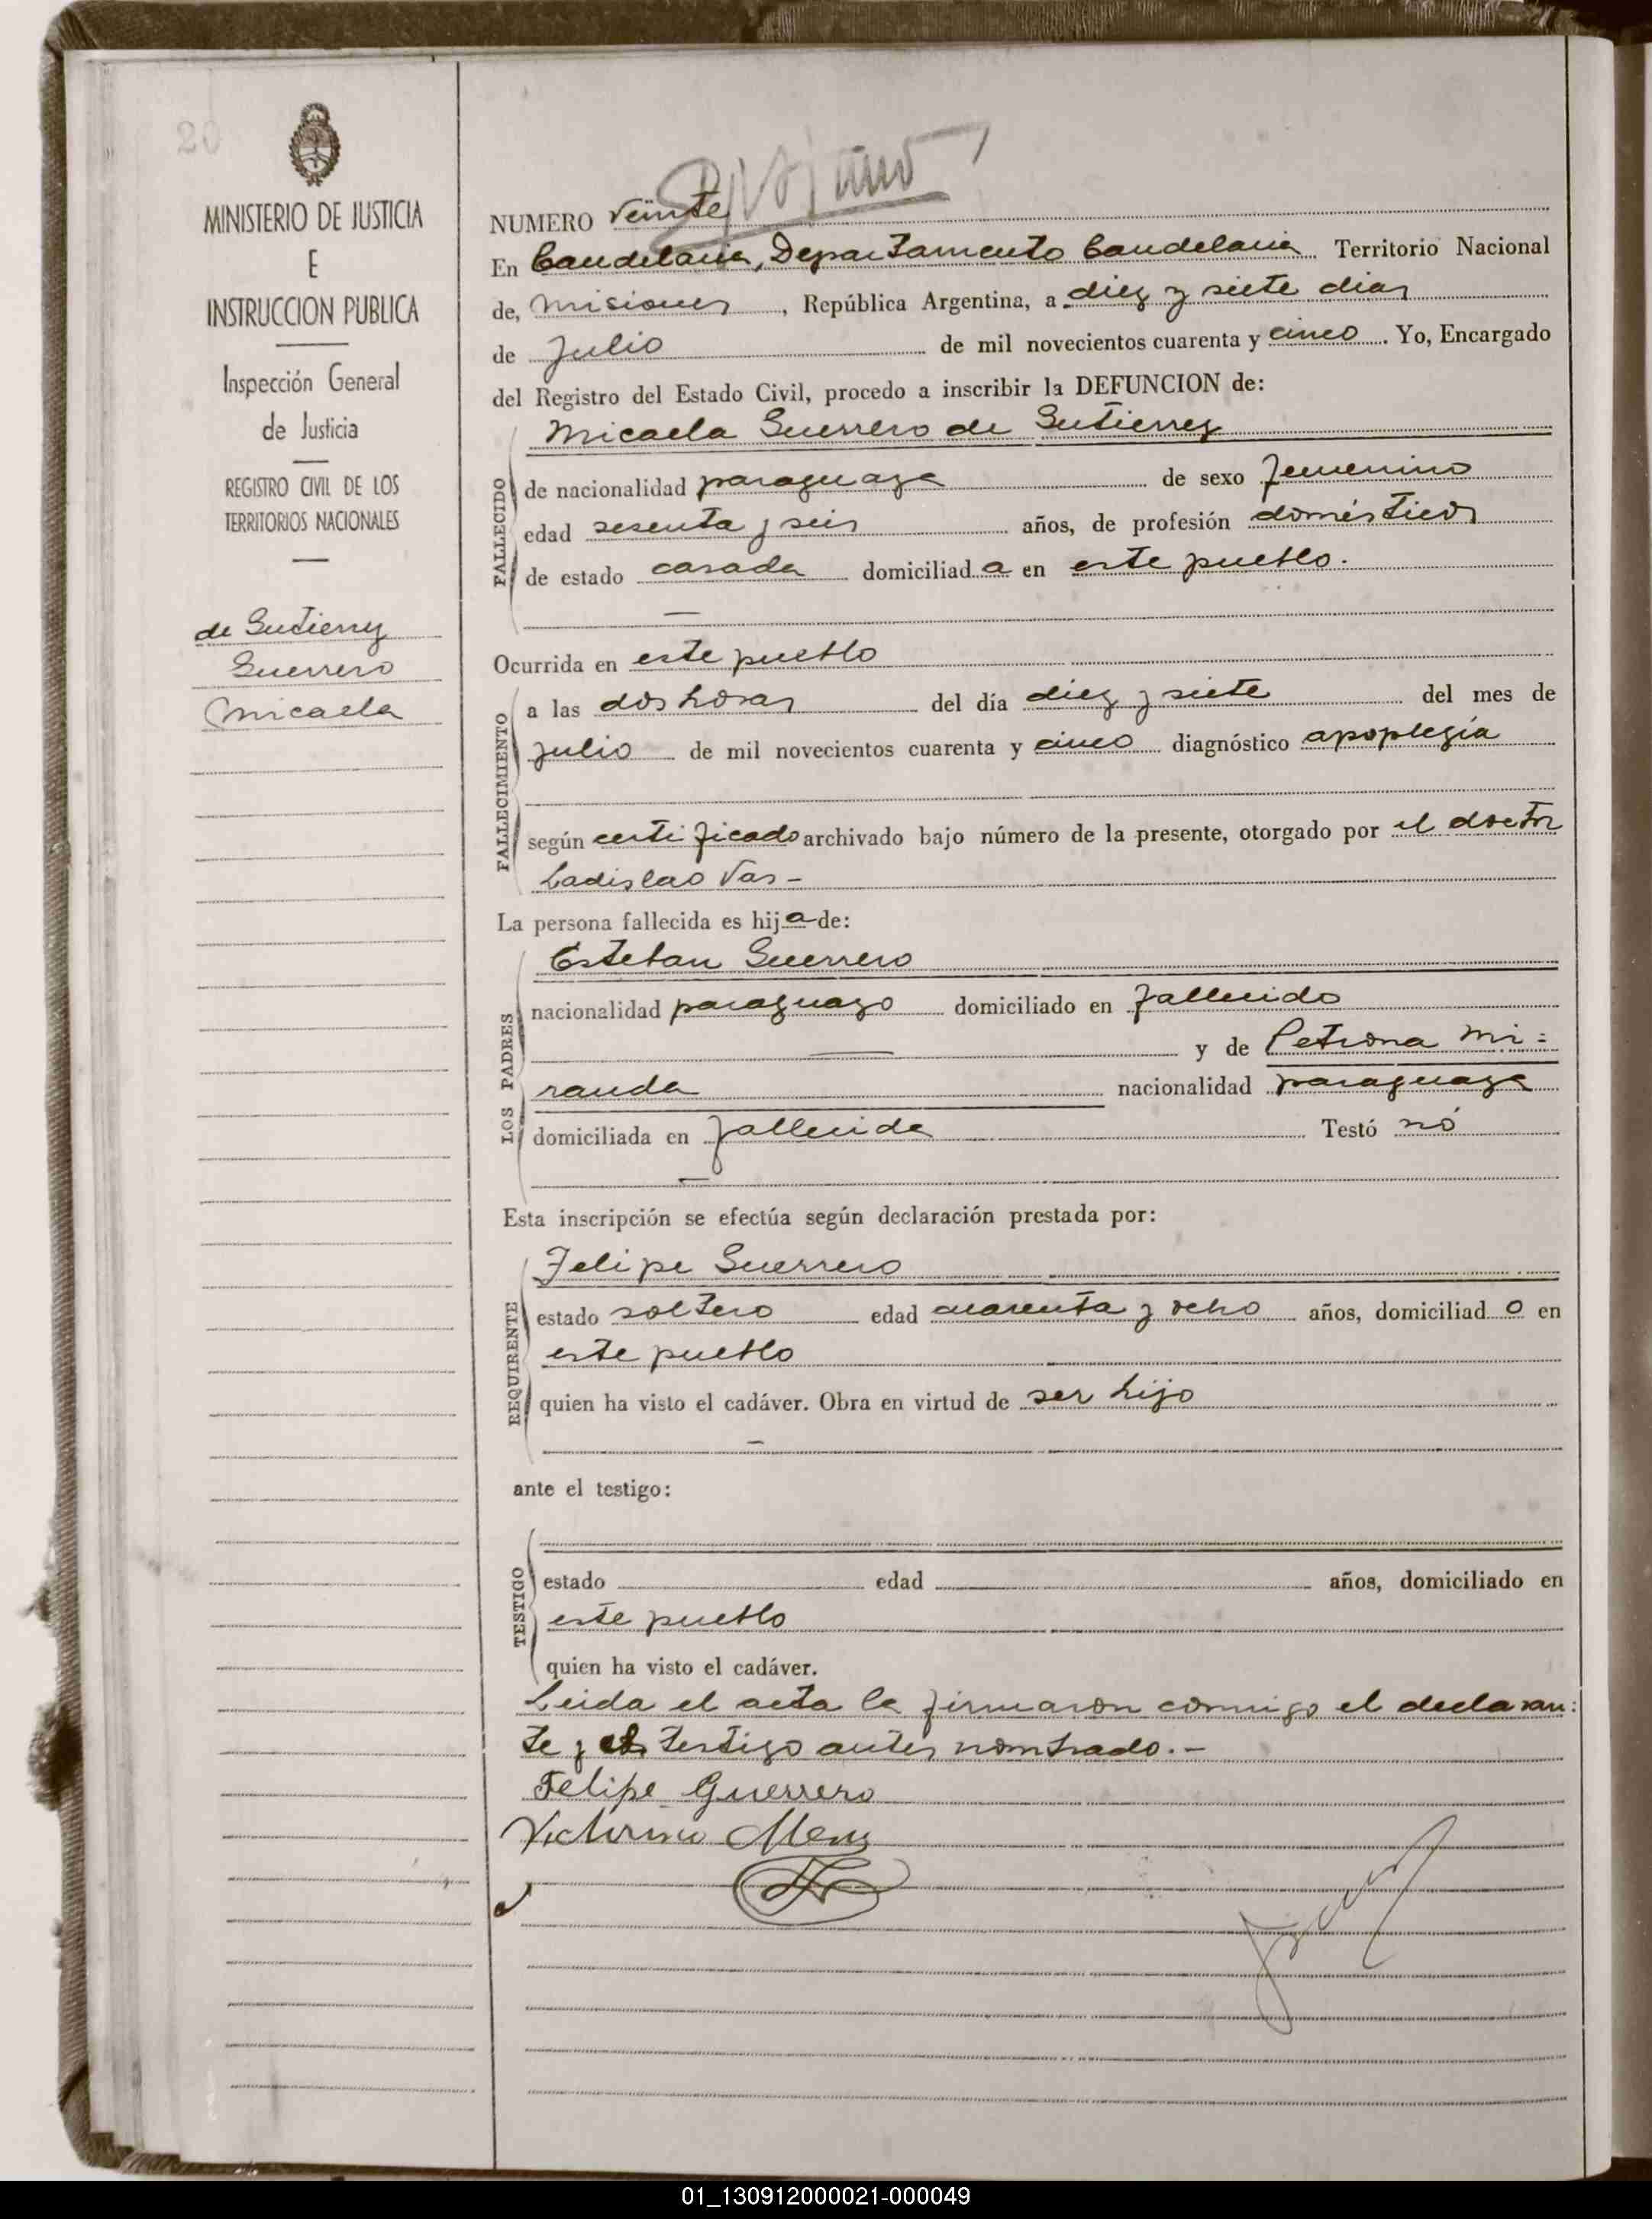 20
MINISTERIO DE JUSTICIA
E
INSTRUCCION PUBLICA
Inspección General
de Justicia
REGISTRO CIVIL DE LOS
TERRITORIOS NACIONALES
de Gutierrez
Guerrero
Micaela
NUMERO Veinte
En Candelaria, Departamento Candelaria Territorio Nacional
de, Misiones, República Argentina, a diez y siete dias
de Julio de mil novecientos cuarenta y cinco. Yo, Encargado
del Registro del Estado Civil, procedo a inscribir la DEFUNCION de:
Micaela Guerrero de Gutierrez
FALLECIDO
de nacionalidad paraguaya de sexo femenino
edad sesenta y seis años, de profesión domésticos
de estado casada domiciliada en este pueblo.
Ocurrida en este pueblo
FALLECIMIENTO
a las dos horas del día diez y siete del mes de
julio de mil novecientos cuarenta y cinco diagnóstico apoplegía
según certificado archivado bajo número de la presente, otorgado por el doctor
Ladislao Vas-
La persona fallecida es hija de:
LOS PADRES
Esteban Guerrero
nacionalidad paraguayo domiciliado en fallecido
y de Petrona Mi=
randa nacionalidad paraguaya
domiciliada en fallecida Testó nó
Esta inscripción se efectúa según declaración prestada por:
REQUIRENTE
Felipe Guerrero
estado soltero edad cuarenta y ocho años, domiciliado en
este pueblo
quien ha visto el cadáver. Obra en virtud de ser hijo
ante el testigo:
TESTIGO
estado edad años, domiciliado en
este pueblo
quien ha visto el cadáver.
Leida el acta la firmaron conmigo el declaran=
te y el testigo antes nombrado.-
Felipe Guerrero
01_130912000021-000049